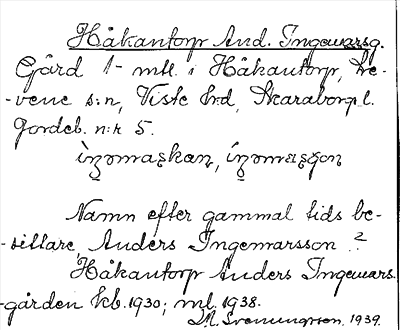 Håkantorp And. Ingemarsg.
Gård 1- mtl. i Håkantorp, Tre-
-vene s:n, Viste hrd, Skaraborgs l.
Jordeb. n:r 5.
Namn efter gammal tids be-
-sittare, Anders Ingemarsson?
Håkantorp Anders Ingemars-
-gården kb. 1930; ml. 1938.
1939.